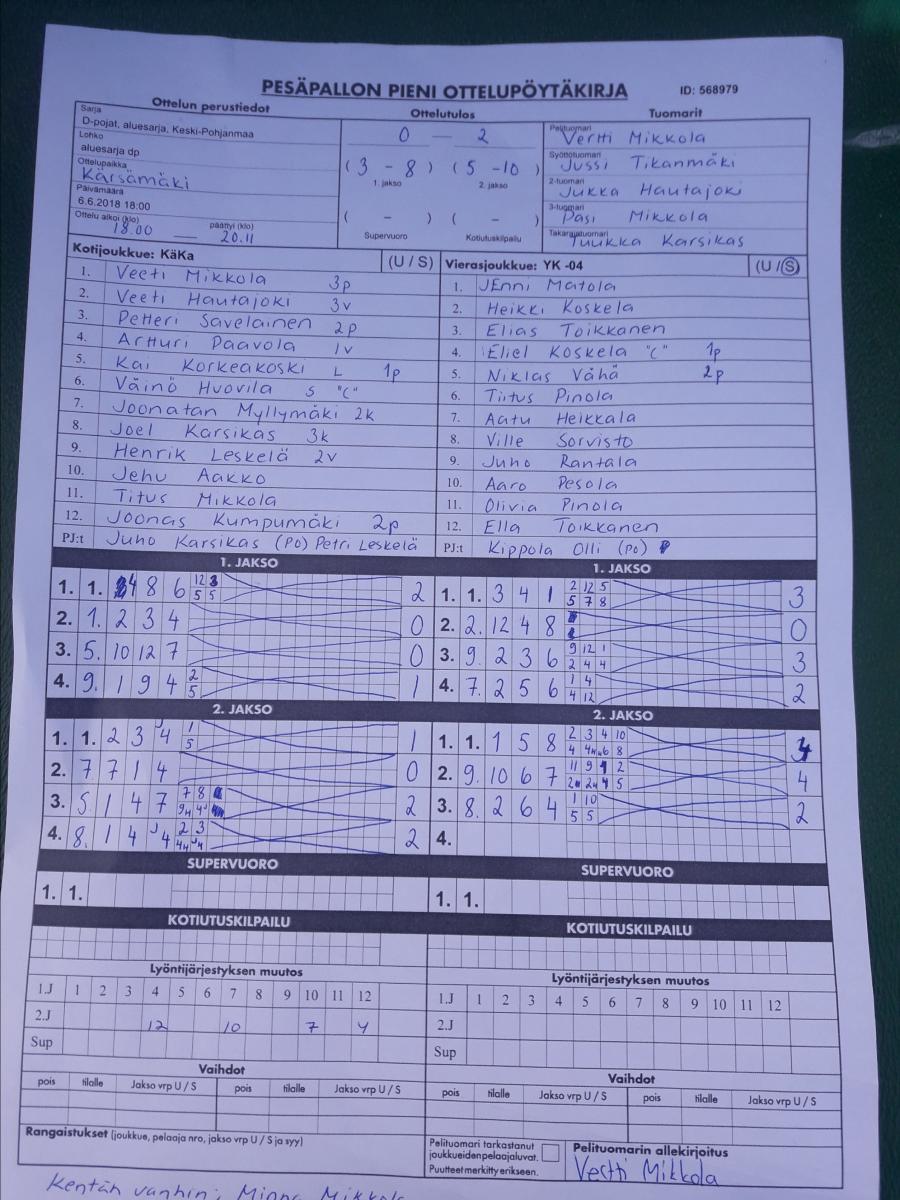 PESÄPALLON PIENI OTTELUPÖYTÄKIRJA
ID: 568979
Ottelun perustiedot
Sarja
D-pojat, aluesarja, Keski-Pohjanmaa
Lohko
aluesarja dp
Ottelupaikka
Kärsämäki
Päivämäärä
6.6.2018 18:00
Ottelu alkoi (klo) päättyi (klo)
18.00 — 20.11
Ottelutulos
0 — 2
(3 - 8) (5 -10)
1. jakso 2. jakso
( - ) ( - )
Supervuoro Kotiutuskilpailu
Tuomarit
Pelituomari
Vertti Mikkola
Syöttötuomari
Jussi Tikanmäki
2-tuomari
Jukka Hautajoki
3-tuomari
Pasi Mikkola
Takarajatuomari
Tuukka Karsikas
Kotijoukkue: KäKa (U / S)
1. Veeti Mikkola 3p
2. Veeti Hautajoki 3v
3. Petteri Savelainen 2p
4. Artturi Paavola 1v
5. Kai Korkeakoski L 1p
6. Väinö Huovila S "C"
7. Joonatan Myllymäki 2k
8. Joel Karsikas 3k
9. Henrik Leskelä 2v
10. Jehu Aakko
11. Titus Mikkola
12. Joonas Kumpumäki 2p
PJ:t Juho Karsikas (PO) Petri Leskelä
Vierasjoukkue: YK -04 (U / S)
1. JEnni Matola
2. Heikki Koskela
3. Elias Toikkanen
4. Eliel Koskela "C" 1p
5. Niklas Vähä 2p
6. Tiitus Pinola
7. Aatu Heikkala
8. Ville Sorvisto
9. Juho Rantala
10. Aaro Pesola
11. Olivia Pinola
12. Ella Toikkanen
PJ:t Kippola Olli (PO)
1. JAKSO
1. 1. 4 8 6 12 3 2
5 5
2. 1. 2 3 4 0
3. 5. 10 12 7 0
4. 9. 1 9 4 2 1
5
1. JAKSO
1. 1. 3 4 1 2 12 5 3
5 7 8
2. 2. 12 4 8 0
3. 9. 2 3 6 9 12 1 3
2 4 4
4. 7. 2 5 6 1 4 2
4 12
2. JAKSO
1. 1. 2 3 4 1 1
5
2. 7 7 1 4 0
3. 5. 1 4 7 7 8 2
4. 8. 1 4 4 2 3 2
2. JAKSO
1. 1. 1 5 8 2 3 4 10 4
2. 9. 10 6 7 4
3. 8. 2 6 4 1 10 2
5 5
4.
SUPERVUORO
1. 1.
SUPERVUORO
1. 1.
KOTIUTUSKILPAILU
KOTIUTUSKILPAILU
Lyöntijärjestyksen muutos
1.J 1 2 3 4 5 6 7 8 9 10 11 12
2.J 12 10 7 4
Sup
Lyöntijärjestyksen muutos
1.J 1 2 3 4 5 6 7 8 9 10 11 12
2.J
Sup
Vaihdot
pois tilalle Jakso vrp U / S pois tilalle Jakso vrp U / S
Vaihdot
pois tilalle Jakso vrp U / S pois tilalle Jakso vrp U / S
Rangaistukset (joukkue, pelaaja nro, jakso vrp U / S ja syy)
Pelituomari tarkastanut
joukkueiden pelaajaluvat.
Puutteet merkitty erikseen.
Pelituomarin allekirjoitus
Vertti Mikkola
Kentän vanhin: Minna Mikkola